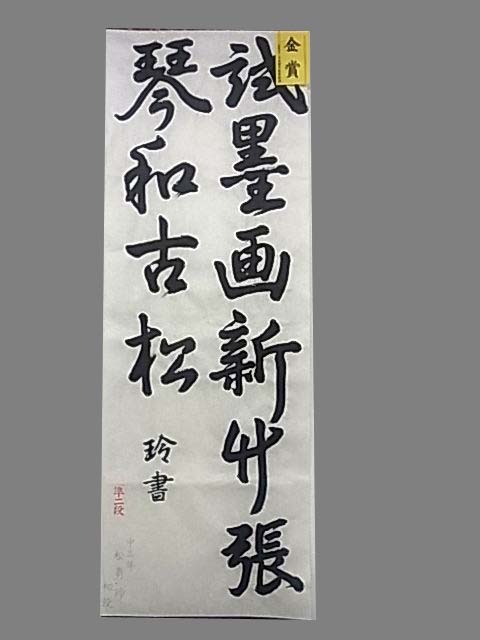 金賞
試墨画新竹張
琴和古松
玲書
準二段